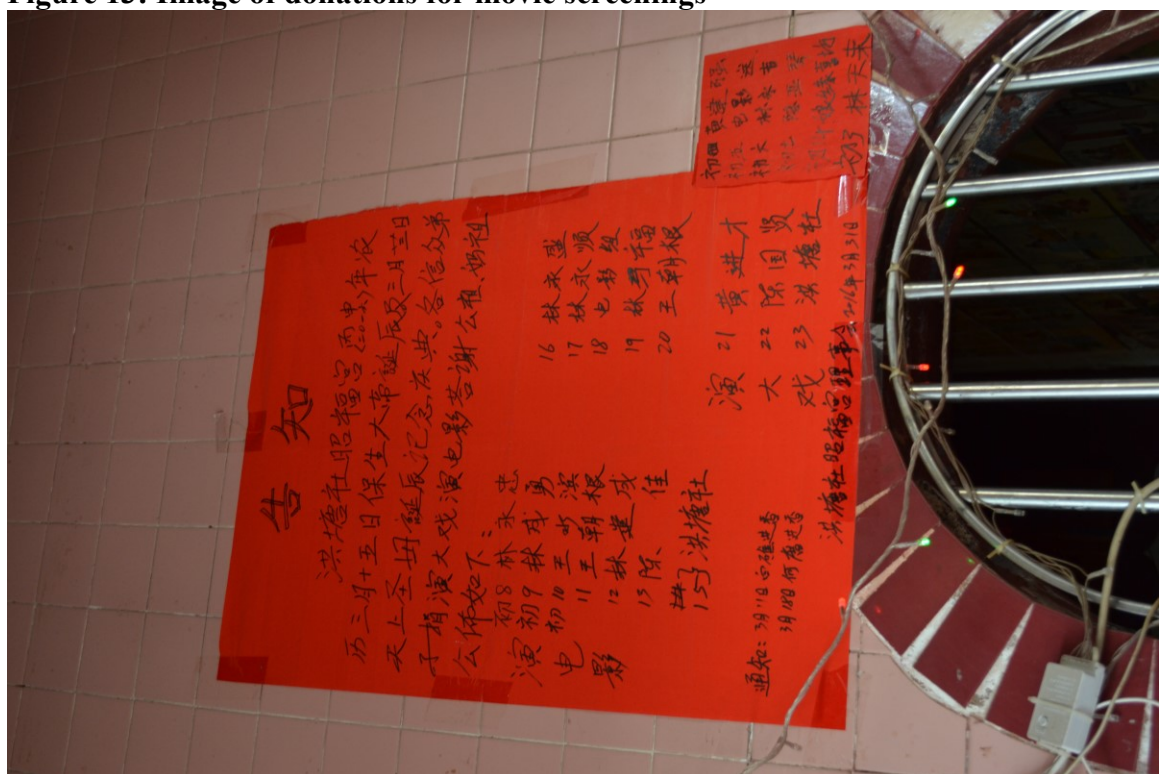 Image of donations for movie screenings
告知
洪塘社昭福宫丙申(2016)年农
历三月十五日保生大帝诞辰及三月廿三日
天上圣母诞辰记念庆典。各信众弟
子捐演大戏演电影答谢公祖、妈祖
公佈如下：
演电影
初8 林永忠
初9 林成勇
初10 王水滨
11 王朝根
12 林建成
13 陈佳
15号 洪塘社
16 林永盛
17 林永顺
18 电影组
19 林福
20 王朝根
演大戏
21 黄进才
22 陈国贤
23 洪塘社
通知：3月11日白礁进香
3月18日何厝进香
洪塘社昭福宫理事会2016年3月31日
初四 黄建
初五 电影送
初六 林永吉
林天来